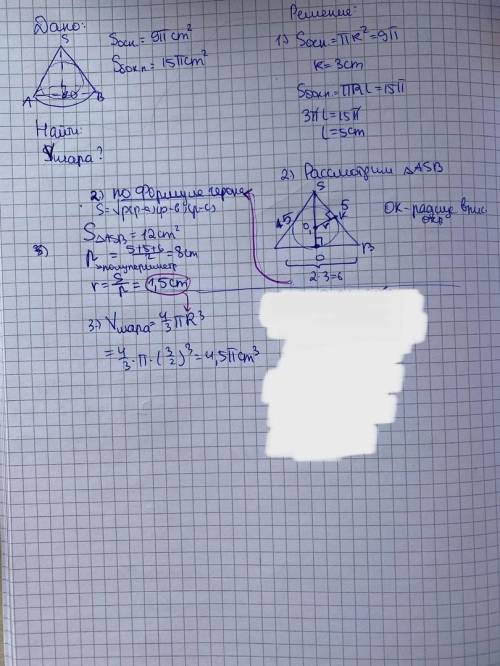 Дано:
S
A
B
Sосн = 9π cm²
Sбок.п = 15π cm²
Найти:
Vшара?
Решение:
1) Sосн = πR² = 9π
R = 3cm
Sбок.п = πRL = 15π
3πL = 15π
L = 5cm
2) Рассмотрим △ASB
S
5
5
K
O₁
B
O
2·3=6
OK - радиус впис
окр
2) по формуле герона
S = √p(p-a)(p-в)(p-c)
S△ASB = 12cm²
3)
p = (5+5+6)/2 = 8cm
полупериметр
r = S/p = 1,5cm
3) Vшара = 4/3 πR³
= 4/3 · π · (3/2)³ = 4,5π cm³